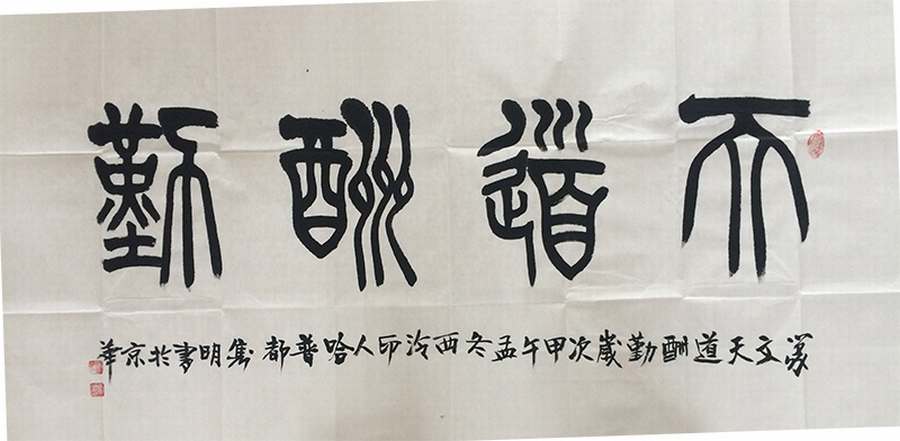 天道酬勤
篆文天道酬勤歲次甲午孟冬西泠印人哈普都隽明書於京華